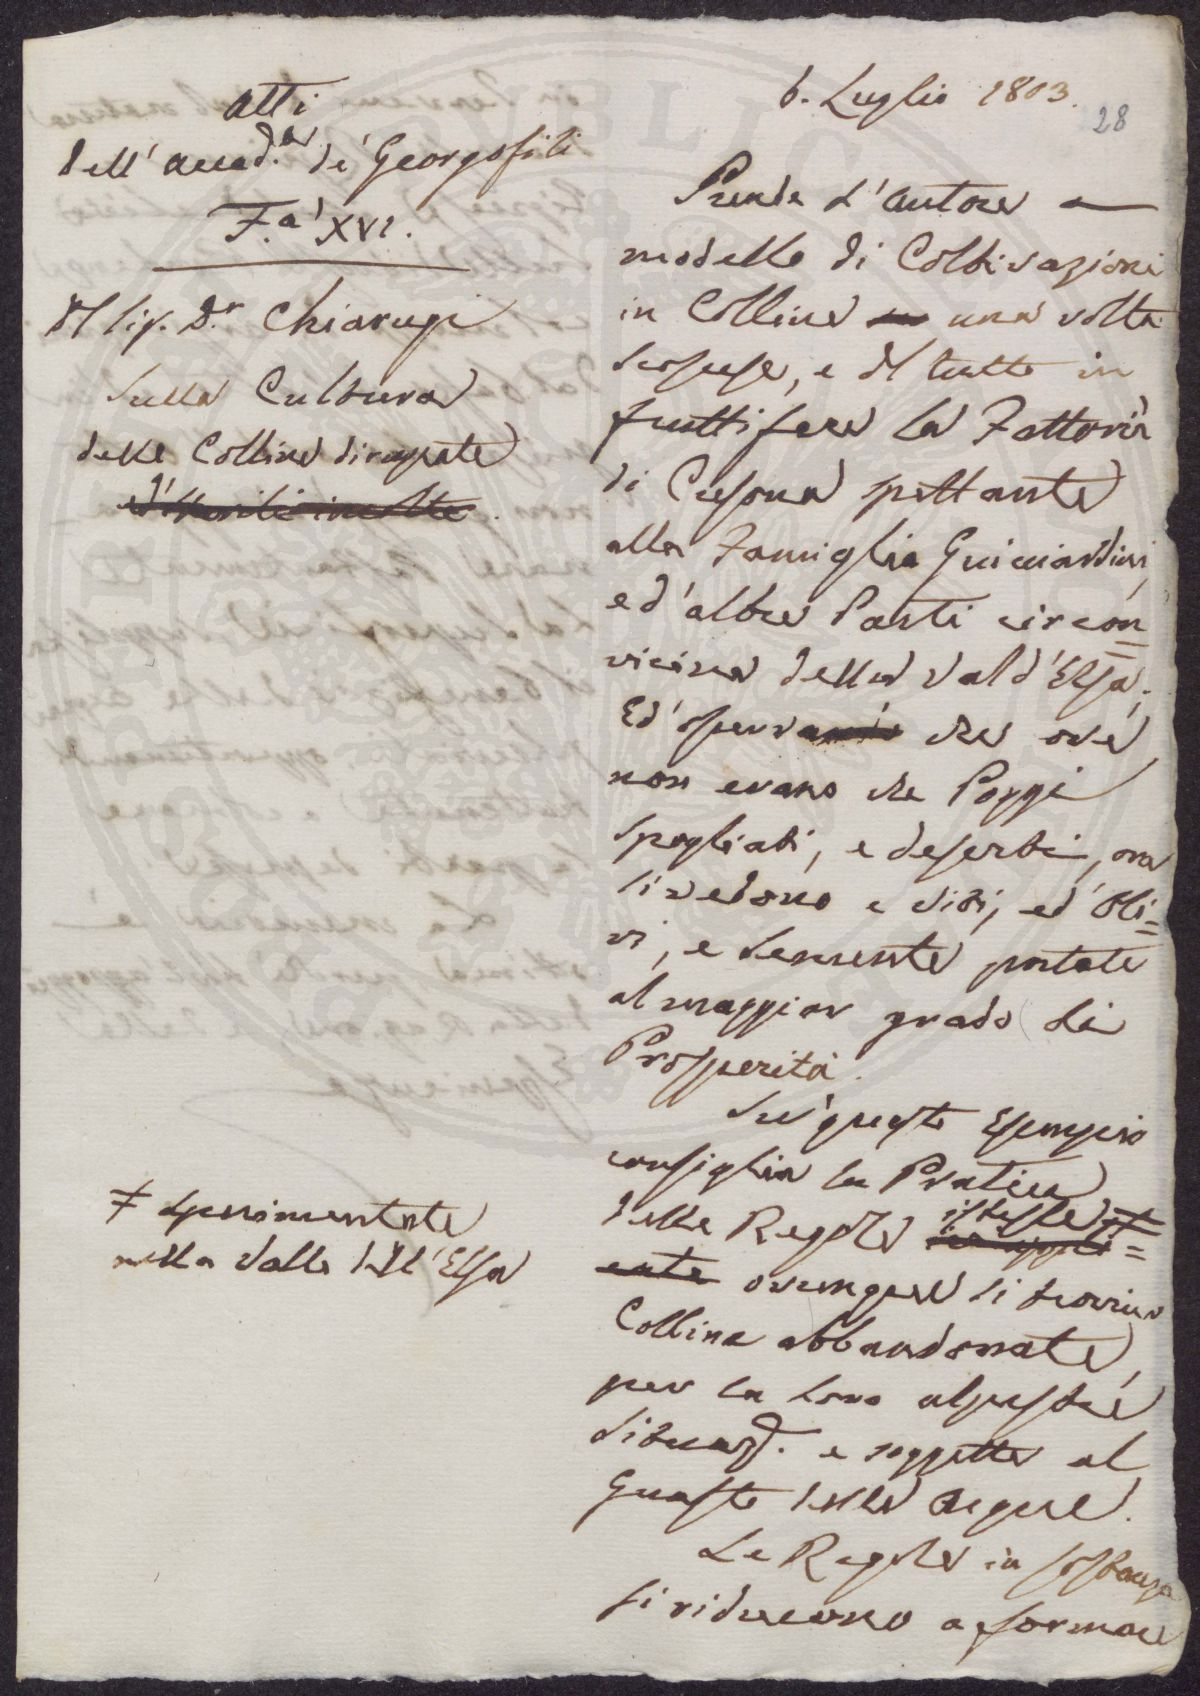 6. Luglio 1803.
28
Atti
dell' Accad.a de' Georgofili
F.a XVI.
Il Sig. D.r Chiarugi
Sulla Cultura
delle Colline dirupate
Prende l'Autore a
modello di Coltivazioni
in Colline una volta
scoscese, e il tutto in
fruttifere la Fattoria
di Cusona spettante
alla Famiglia Guicciardini,
ed' altre Parti circon=
vicine della Val d'Elsa;
Ed' osserva che ove
non erano che Poggi
spogliati, e deserti, ora
si vedono e Viti, ed' Oli=
vi, e Semente portate
al maggior grado di
Prosperità.
Su' questo Esempio
consiglia la Pratica
delle Regole istesse ≠
ovunque si trovino
Colline abbandonate
per la loro alpestre
situaz. e soggette al
Guasto delle Acque.
≠ sperimentate
nella Valle dell'Elsa
Le Regole in sostanza
si riducono a formare